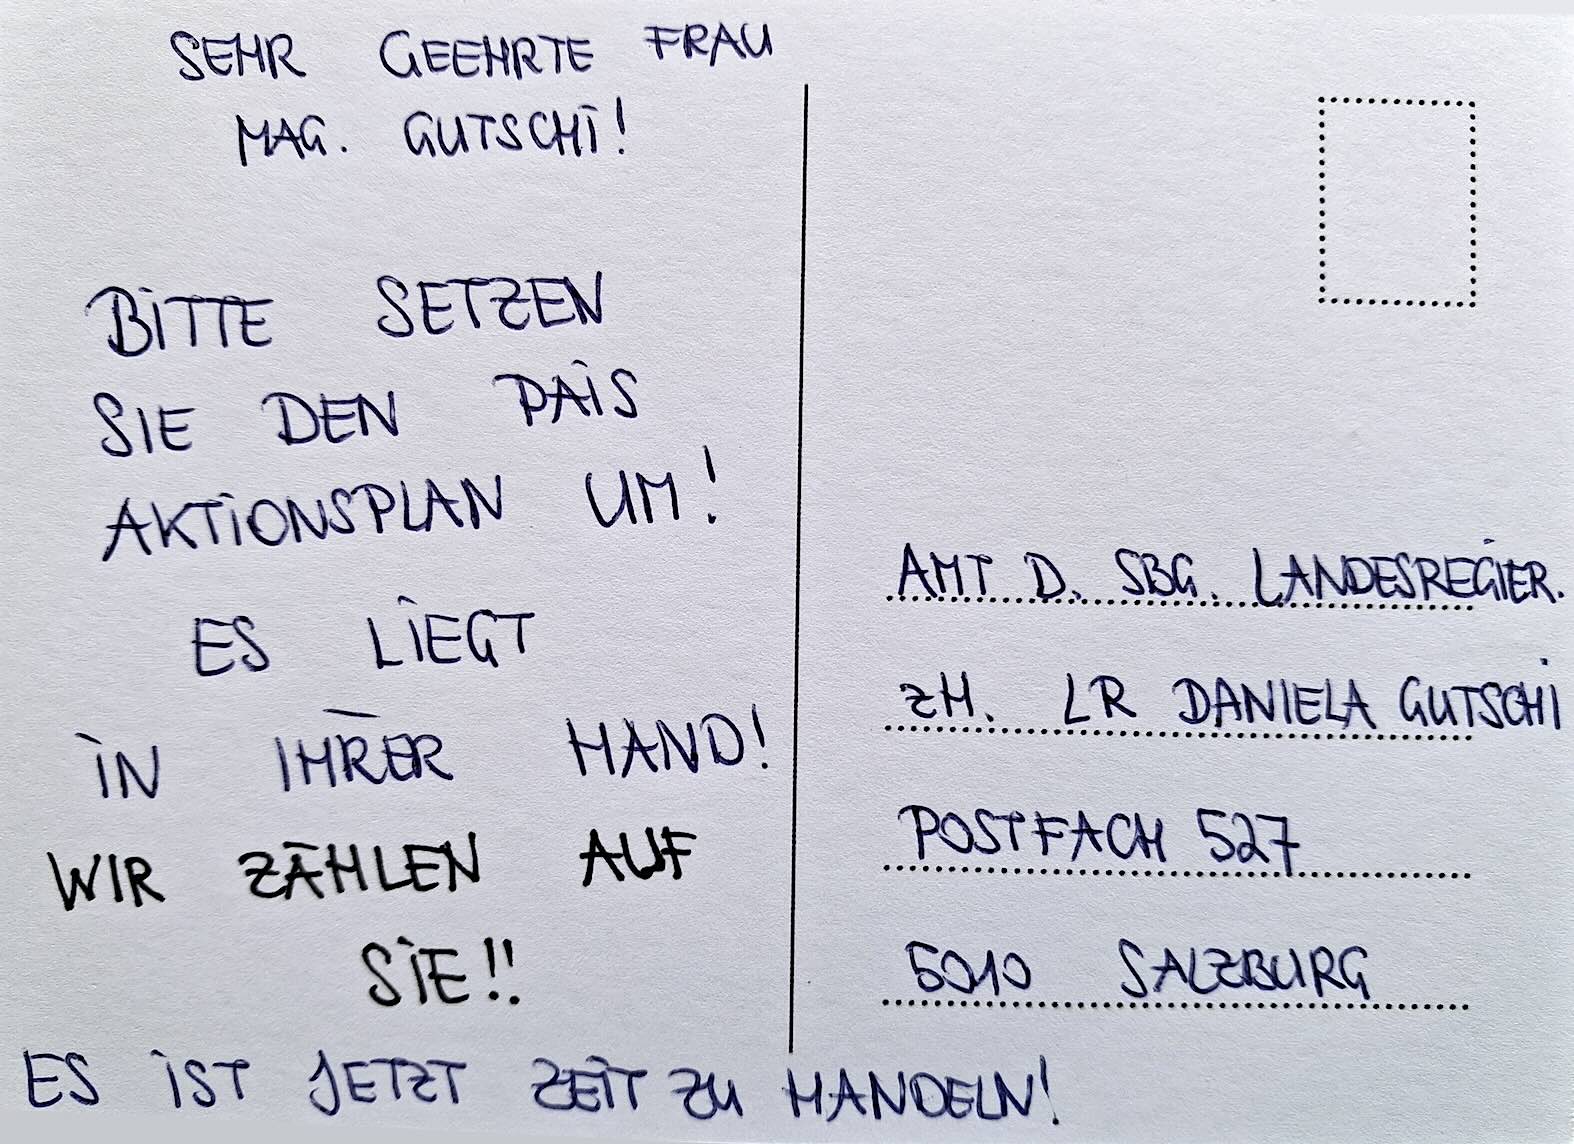 SEHR GEEHRTE FRAU
MAG. GUTSCHI!
BITTE SETZEN
SIE DEN PAIS
AKTIONSPLAN UM!
ES LIEGT
IN IHRER HAND!
WIR ZÄHLEN AUF
SIE!!
ES IST JETZT ZEIT ZU HANDELN!
AMT D. SBG. LANDESREGIER.
ZH. LR DANIELA GUTSCHI
POSTFACH 527
5010 SALZBURG